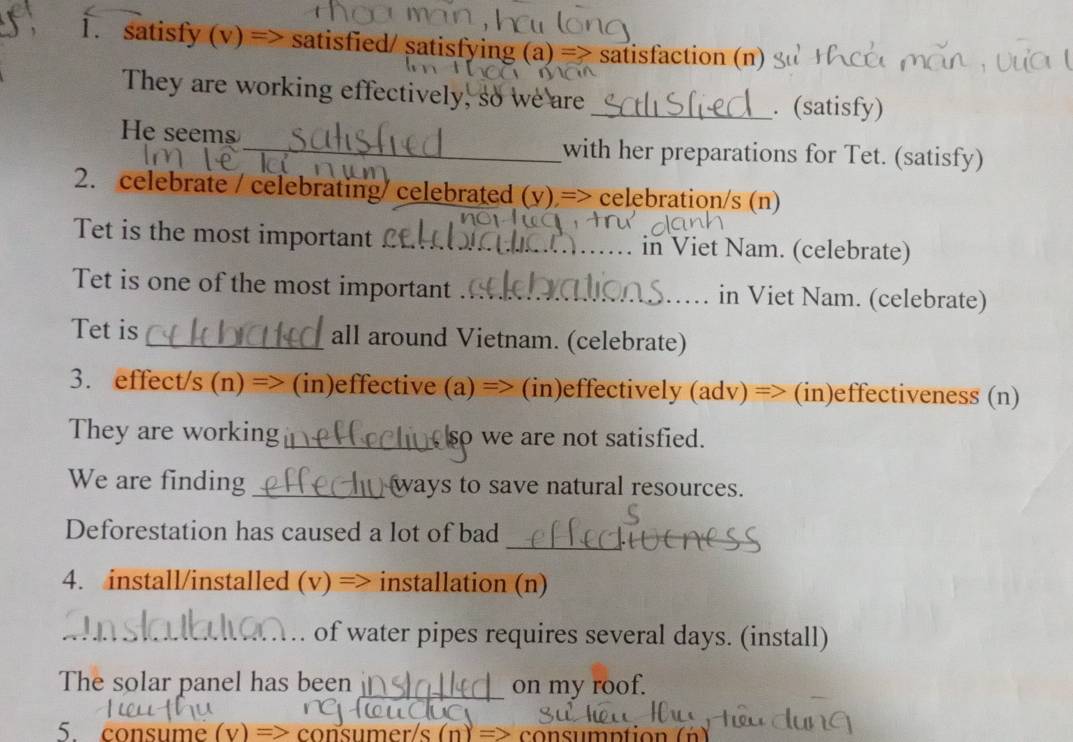 thoả mãn, hài lòng
1. satisfy (v) => satisfied/ satisfying (a) => satisfaction (n) sự thoả mãn, vừa
làm thoả mãn
They are working effectively, so we are satisfied. (satisfy)
He seems satisfied with her preparations for Tet. (satisfy)
làm lễ kỉ niệm
2. celebrate / celebrating/ celebrated (v) => celebration/s (n)
nổi tiếng, trứ danh
Tet is the most important celebration in Viet Nam. (celebrate)
Tet is one of the most important celebrations in Viet Nam. (celebrate)
Tet is celebrated all around Vietnam. (celebrate)
3. effect/s (n) => (in)effective (a) => (in)effectively (adv) => (in)effectiveness (n)
They are working ineffectively so we are not satisfied.
We are finding effective ways to save natural resources.
s
Deforestation has caused a lot of bad effectiveness
4. install/installed (v) => installation (n)
Installation of water pipes requires several days. (install)
The solar panel has been installed on my roof.
tiêu thụ ng tiêu dùng sự tiêu thụ, tiêu dùng
5. consume (v) => consumer/s (n) => consumption (n)